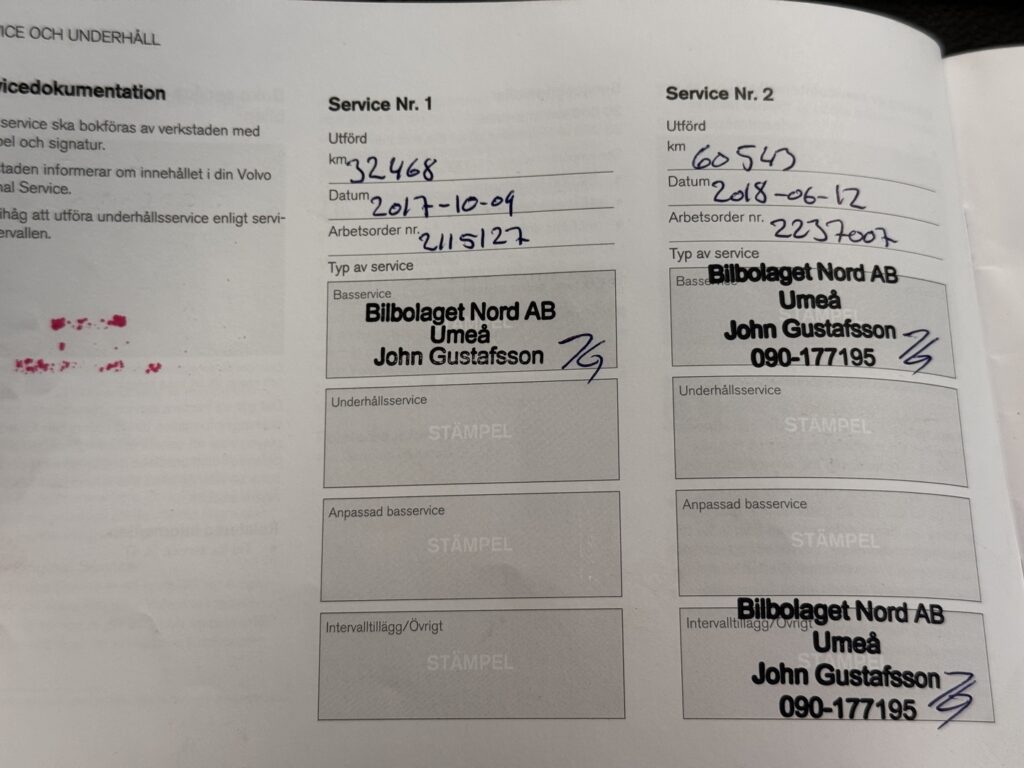 ICE OCH UNDERHÅLL
vicedokumentation
service ska bokföras av verkstaden med
pel och signatur.
staden informerar om innehållet i din Volvo
nal Service.
ihåg att utföra underhållsservice enligt servi-
ervallen.
Service Nr. 1
Utförd
km 32468
Datum 2017-10-09
Arbetsorder nr. 2115127
Typ av service
Basservice
Bilbolaget Nord AB
Umeå
John Gustafsson
Underhållsservice
STÄMPEL
Anpassad basservice
STÄMPEL
Intervalltillägg/Övrigt
STÄMPEL
Service Nr. 2
Utförd
km 60543
Datum 2018-06-12
Arbetsorder nr. 2237007
Typ av service
Basservice
Bilbolaget Nord AB
Umeå
John Gustafsson
090-177195
Underhållsservice
STÄMPEL
Anpassad basservice
STÄMPEL
Intervalltillägg/Övrigt
Bilbolaget Nord AB
Umeå
John Gustafsson
090-177195